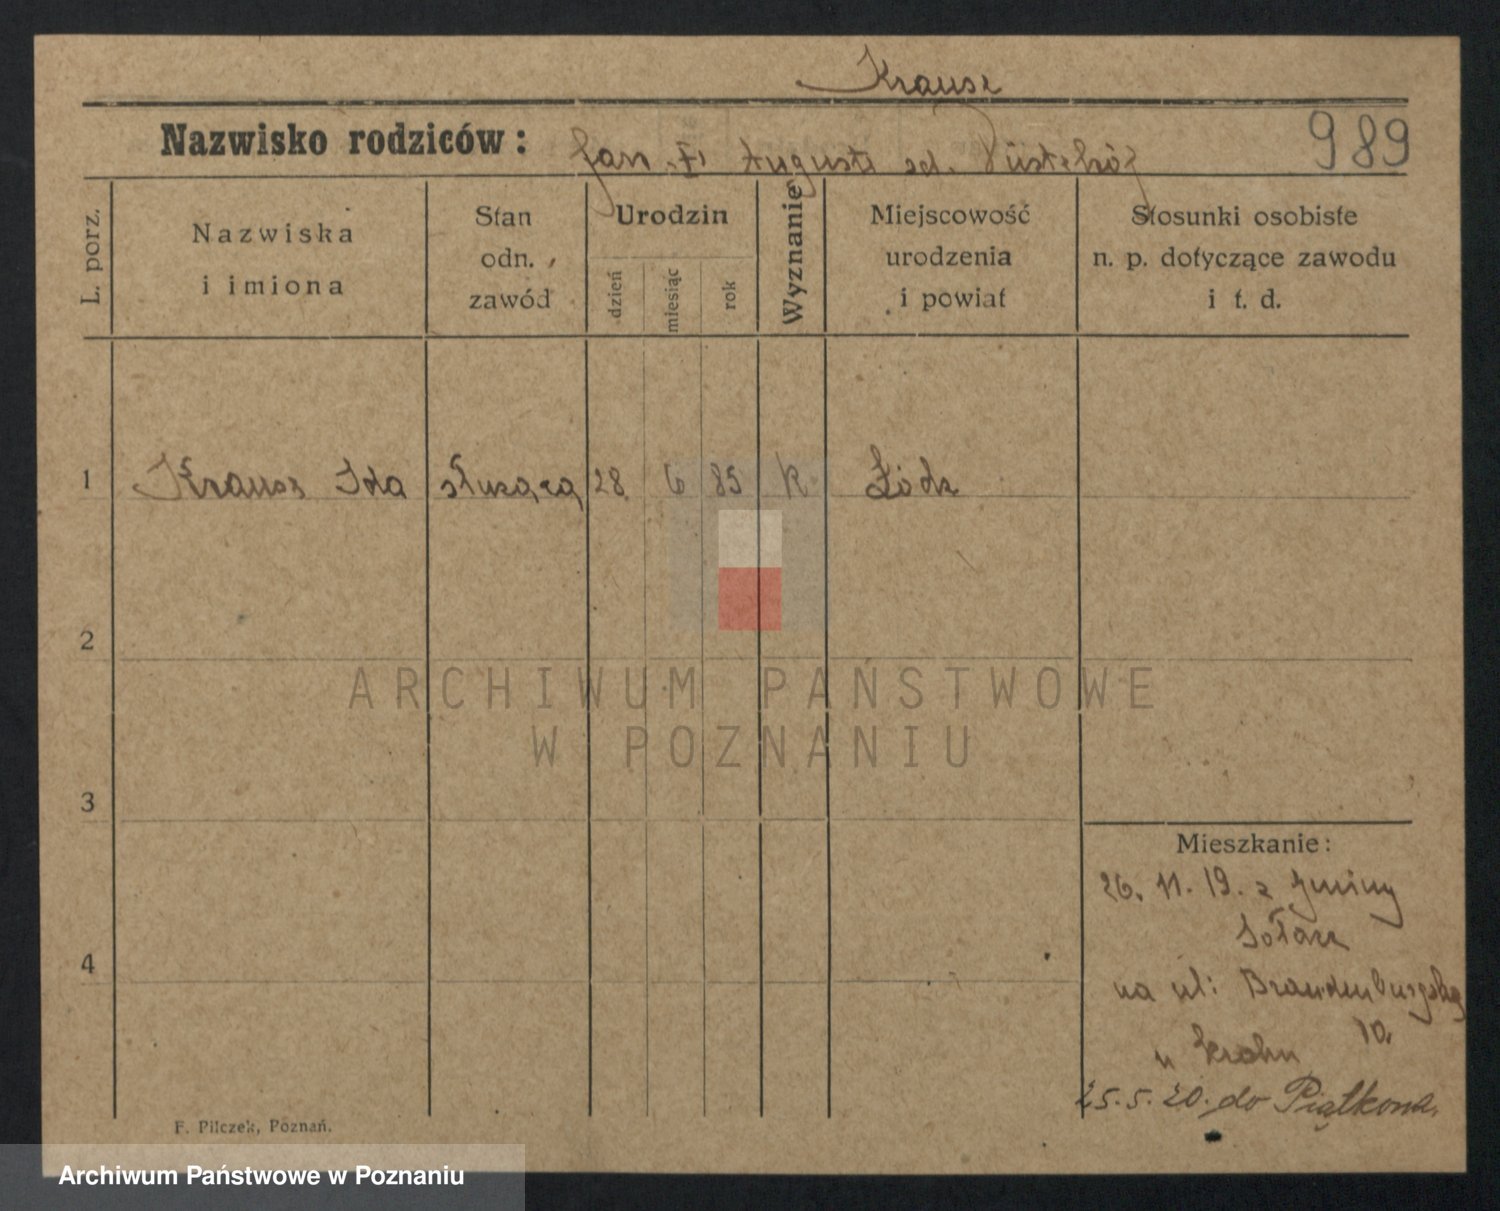 Krausz
Nazwisko rodziców: Jan i Augusta 989
L. porz.
Nazwiska
i imiona
Stan
odn.
zawód
Urodzin
dzień
miesiąc
rok
Wyznanie
Miejscowość
urodzenia
i powiat
Stosunki osobiste
n. p. dotyczące zawodu
i t. d.
1 Krausz Ida służąca 28 6 85 k Łódz
2
3
4
ARCHIWUM PAŃSTWOWE
W POZNANIU
Mieszkanie:
26. 11. 19. z gminy
Sołacz
na ul: Brandenburgską
10.
u
25.5.20. do Piątkowa.
F. Pilczek, Poznań.
Archiwum Państwowe w Poznaniu